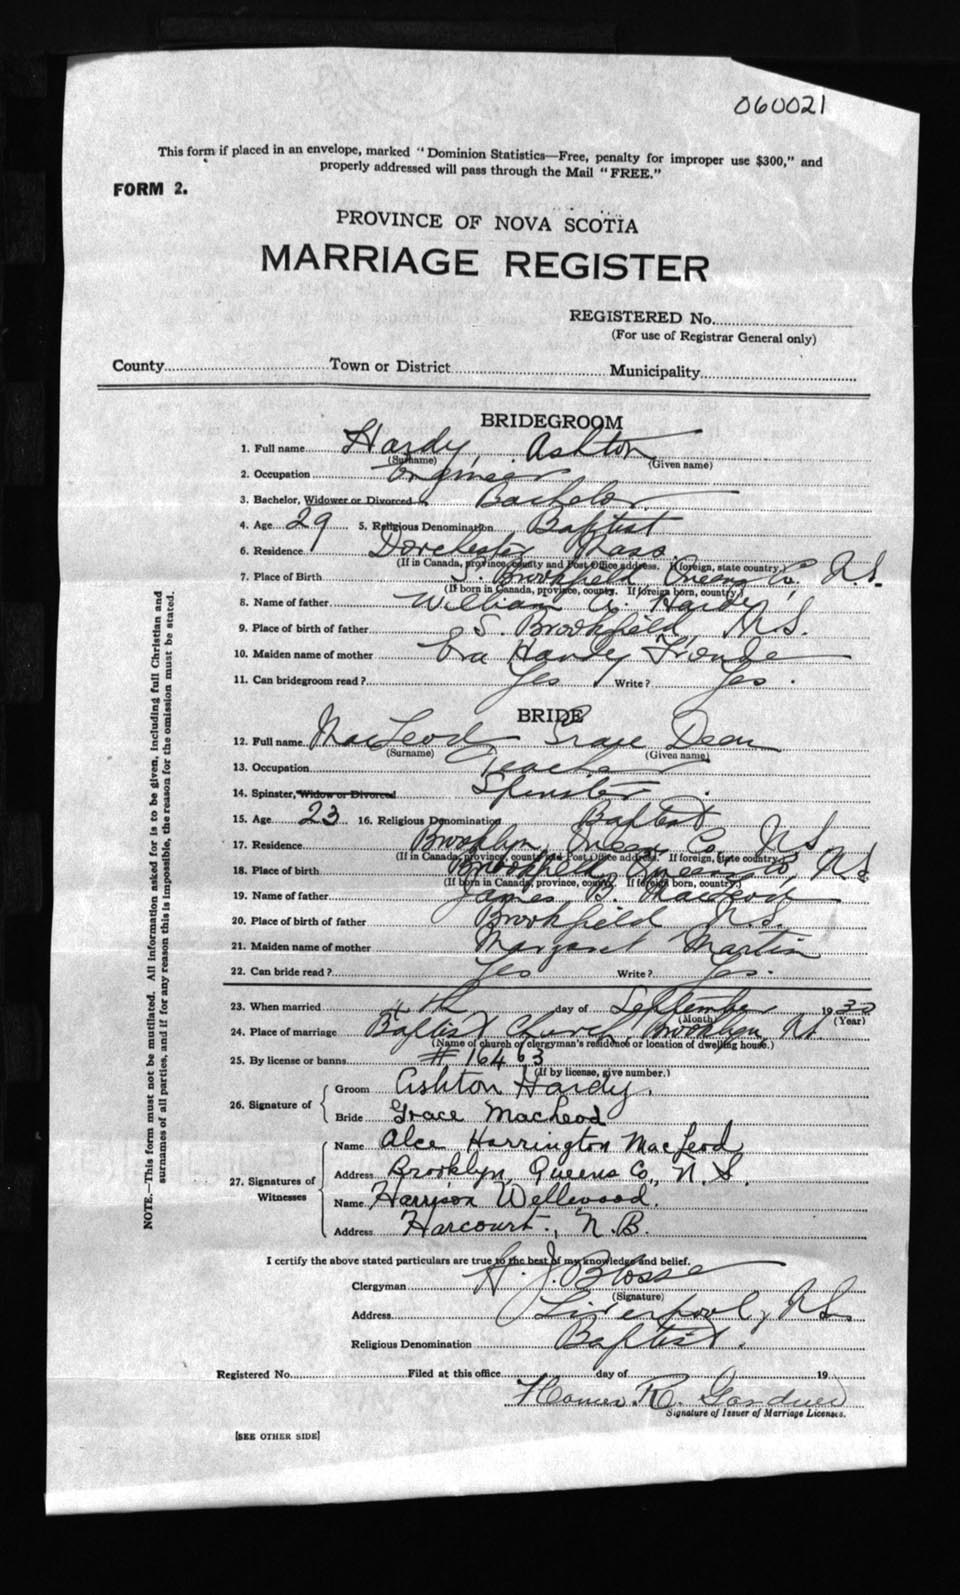 060021
This form if placed in an envelope, marked "Dominion Statistics—Free, penalty for improper use $300," and
properly addressed will pass through the Mail "FREE."
FORM 2.
PROVINCE OF NOVA SCOTIA
MARRIAGE REGISTER
REGISTERED No.
(For use of Registrar General only)
County Town or District Municipality
BRIDEGROOM
1. Full name Hardy, Ashton
(Surname) (Given name)
2. Occupation Engineer
3. Bachelor, Widower or Divorced Bachelor
4. Age 29 5. Religious Denomination Baptist
6. Residence Dorchester Mass.
(If in Canada, province, county and Post Office address. If foreign, state country.)
7. Place of Birth S. Brookfield, Queens Co, N.S.
(If born in Canada, province, county. If foreign born, country.)
8. Name of father William A. Hardy
9. Place of birth of father S. Brookfield, N.S.
10. Maiden name of mother Hardy
11. Can bridegroom read? Yes Write? Yes.
BRIDE
12. Full name MacLeod Grace Dean
(Surname) (Given name)
13. Occupation Teacher
14. Spinster, Widow or Divorced Spinster
15. Age 23 16. Religious Denomination Baptist
17. Residence Brooklyn, Queens Co. N.S.
(If in Canada, province, county and Post Office address. If foreign, state country.)
18. Place of birth Brookfield, Queens Co, N.S.
(If born in Canada, province, county. If foreign born, country.)
19. Name of father James B. MacLeod
20. Place of birth of father Brookfield N.S.
21. Maiden name of mother Margaret Martin
22. Can bride read? Yes Write? Yes.
23. When married day of September 1930
(Month) (Year)
24. Place of marriage Baptist Church, Brooklyn, N.S.
(Name of church or clergyman's residence or location of dwelling house.)
25. By license or banns # 16463
(If by license, give number.)
26. Signature of
Groom Ashton Hardy.
Bride Grace MacLeod
27. Signatures of Witnesses
Name Alce Harrington MacLeod
Address Brooklyn, Queens Co., N.S.
Name Harrison Wellwood.
Address Harcourt, N.B.
I certify the above stated particulars are true to the best of my knowledge and belief.
Clergyman H. J. Blosse
(Signature)
Address Liverpool, N.S.
Religious Denomination Baptist.
Registered No. Filed at this office day of 19
Homer R. Gardner
Signature of Issuer of Marriage Licenses.
[SEE OTHER SIDE]
NOTE.—This form must not be mutilated. All information asked for is to be given, including full Christian and
surnames of all parties, and if for any reason this is impossible, the reason for the omission must be stated.